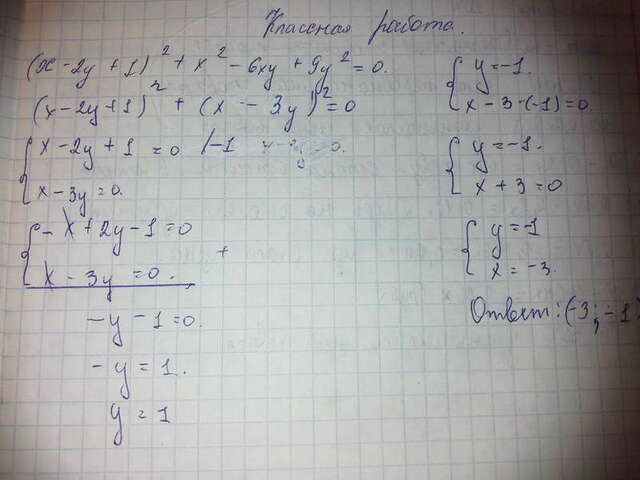 Классная работа.
(x - 2y + 1)² + x² - 6xy + 9y² = 0.
(x - 2y + 1)² + (x - 3y)² = 0
{ x - 2y + 1 = 0 /-1
x - 3y = 0.
{ - x + 2y - 1 = 0
x - 3y = 0. +
-y - 1 = 0.
- y = 1.
y = 1
{ y = -1.
x - 3 · (-1) = 0.
{ y = -1.
x + 3 = 0
{ y = -1
x = -3.
Ответ: (-3; -1